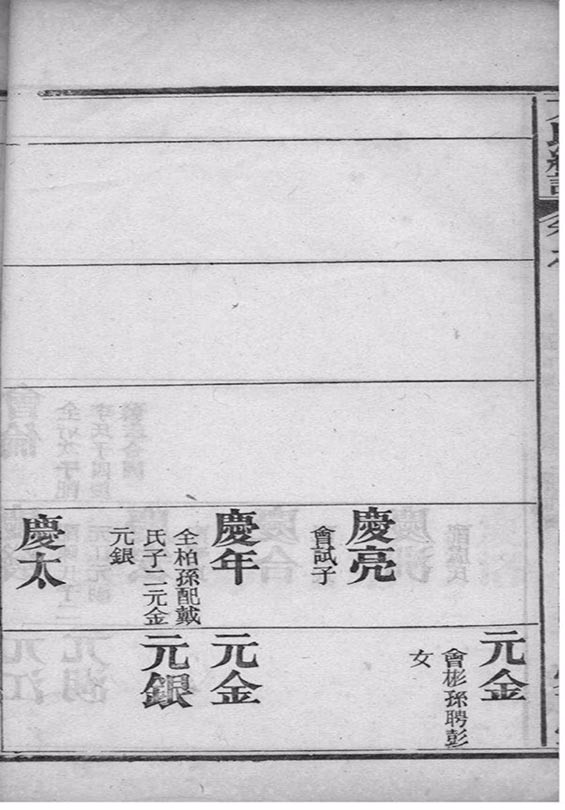 慶亮
會試子
慶年
全柏孫配戴
氏子二元金
元銀
慶太
元金
會彬孫聘彭
女
元金
元銀